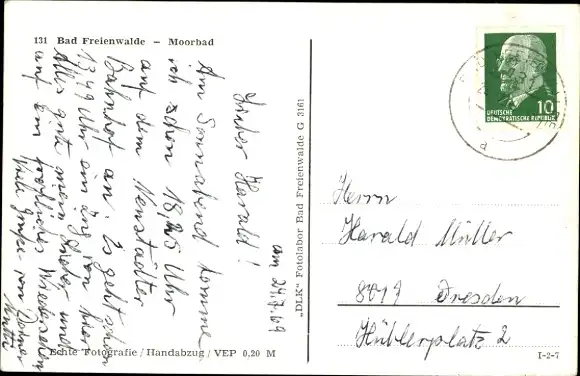 131 Bad Freienwalde – Moorbad
am 24,7.69
Lieber Harald!
Am Sonnabend komme
ich schon 18,25 Uhr
auf dem Neustädter
Bahnhof an. Es geht schon
1349 Uhr ein Zug von hier
Alles gute mein Lieber und
auf ein fröhliches Wiedersehen
Viele Grüße von Deiner
Mutti
Echte Fotografie / Handabzug / VEP 0,20 M
„DLK" Fotolabor Bad Freienwalde G 3161
10
DEUTSCHE
DEMOKRATISCHE REPUBLIK
Herrn
Harald Müller
8019 Dresden
Hüblerplatz 2
I-2-7